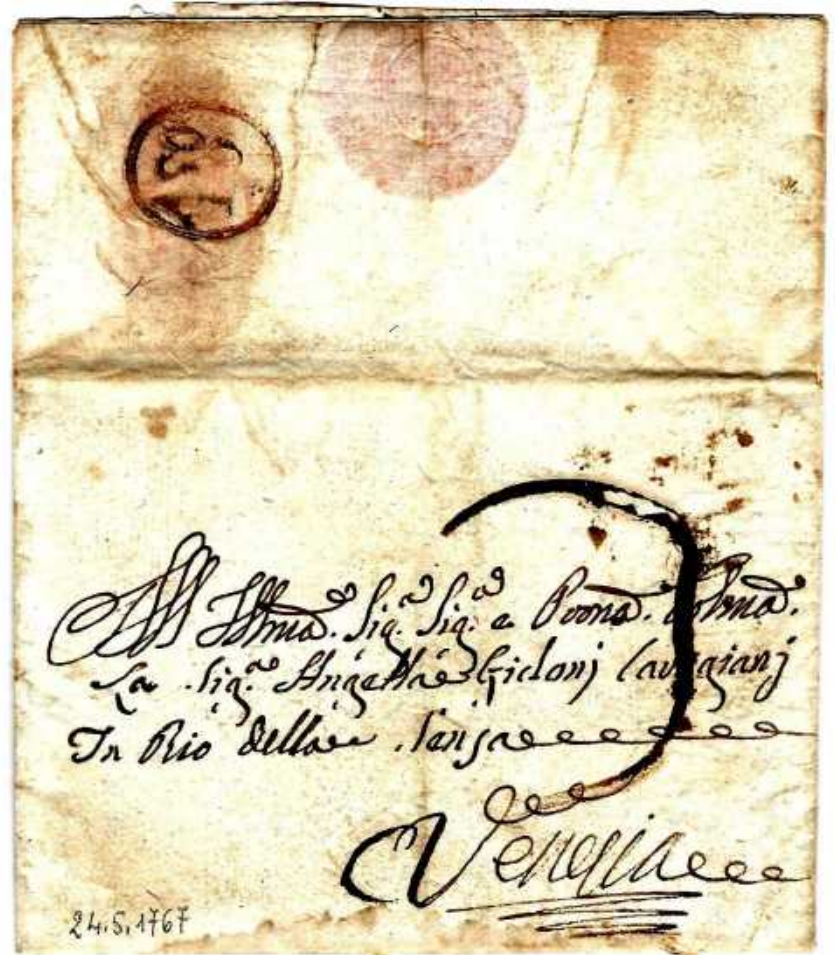 All Illma. Sig.ra Sig.ra e Prona. Colma.
La Sig.ra Angella Gidonj
In Rio della Sensa
Venezia
24.5.1767